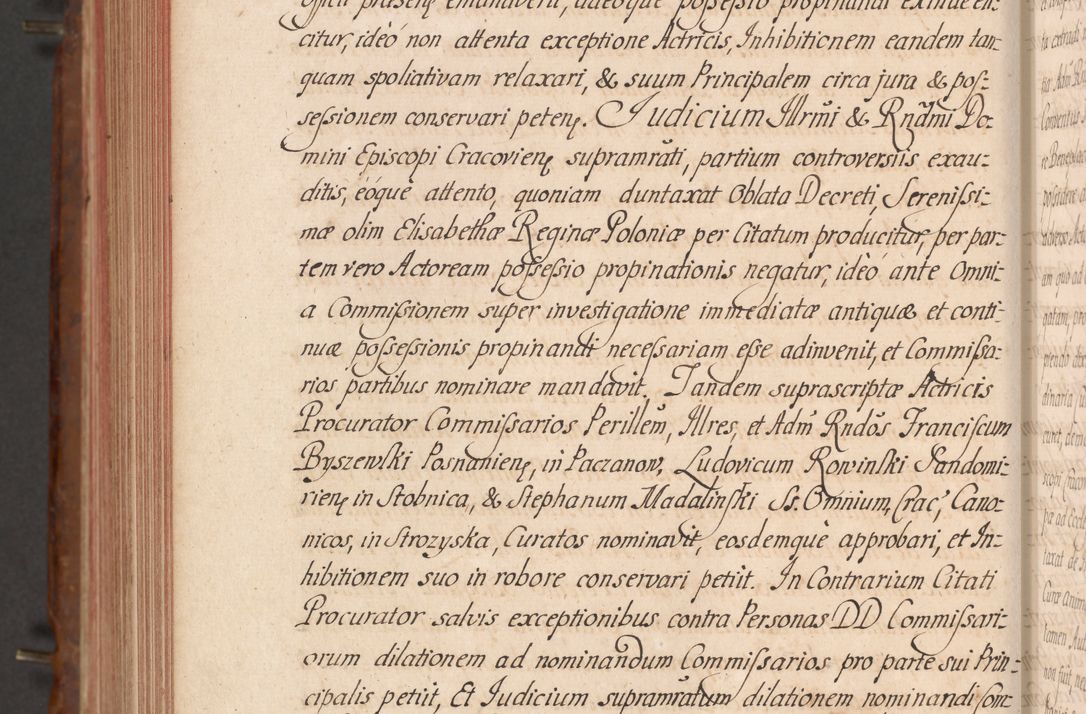 officii præsenę emanaverit, adeoque possessio propinandi exinde eli:
citur, idèo non attenta exceptione Actricis, Inhibitionem eandem tan:
quam spoliativam relaxari, & suum Principalem circa jura & pos:
sessionem conservari petenę. Judicium Illrmi & Rndmi Do:
mini Episcopi Cracovienę supramrati, partium controversiis exau:
ditis, eóque attento, quoniam duntaxat Oblata Decreti, Serenissi:
mæ olim Elisabethæ Reginæ Poloniæ per Citatum producitur, per par:
tem vero Actoream possessio propinationis negatur, idèo ante Omni:
a Commissionem super investigatione immediatæ antiquæ et conti:
nuæ possessionis propinandi necessariam esse adinvenit, et Commissa:
rios partibus nominare mandavit. Tandem suprascriptæ Actricis
Procurator Commissarios Perillem, Illres, et Adm Rndos Franciscum
Byszewski Posnanienę, in Paczanow, Ludovicum Rowinski Sandomi:
rienę in Stobnica, & Stephanum Madalinski SS. Omnium, Crac, Cano:
nicos, in Strozyska, Curatos nominavit, eosdemquè approbari, et In:
hibitionem suo in robore conservari petiit. In Contrarium Citati
Procurator salvis exceptionibus contra Personas DD Commissari:
orum dilationem ad nominandum Commissarios pro parte sui Prin:
cipalis petiit, Et Judicium supramratum dilationem nominandi Com: